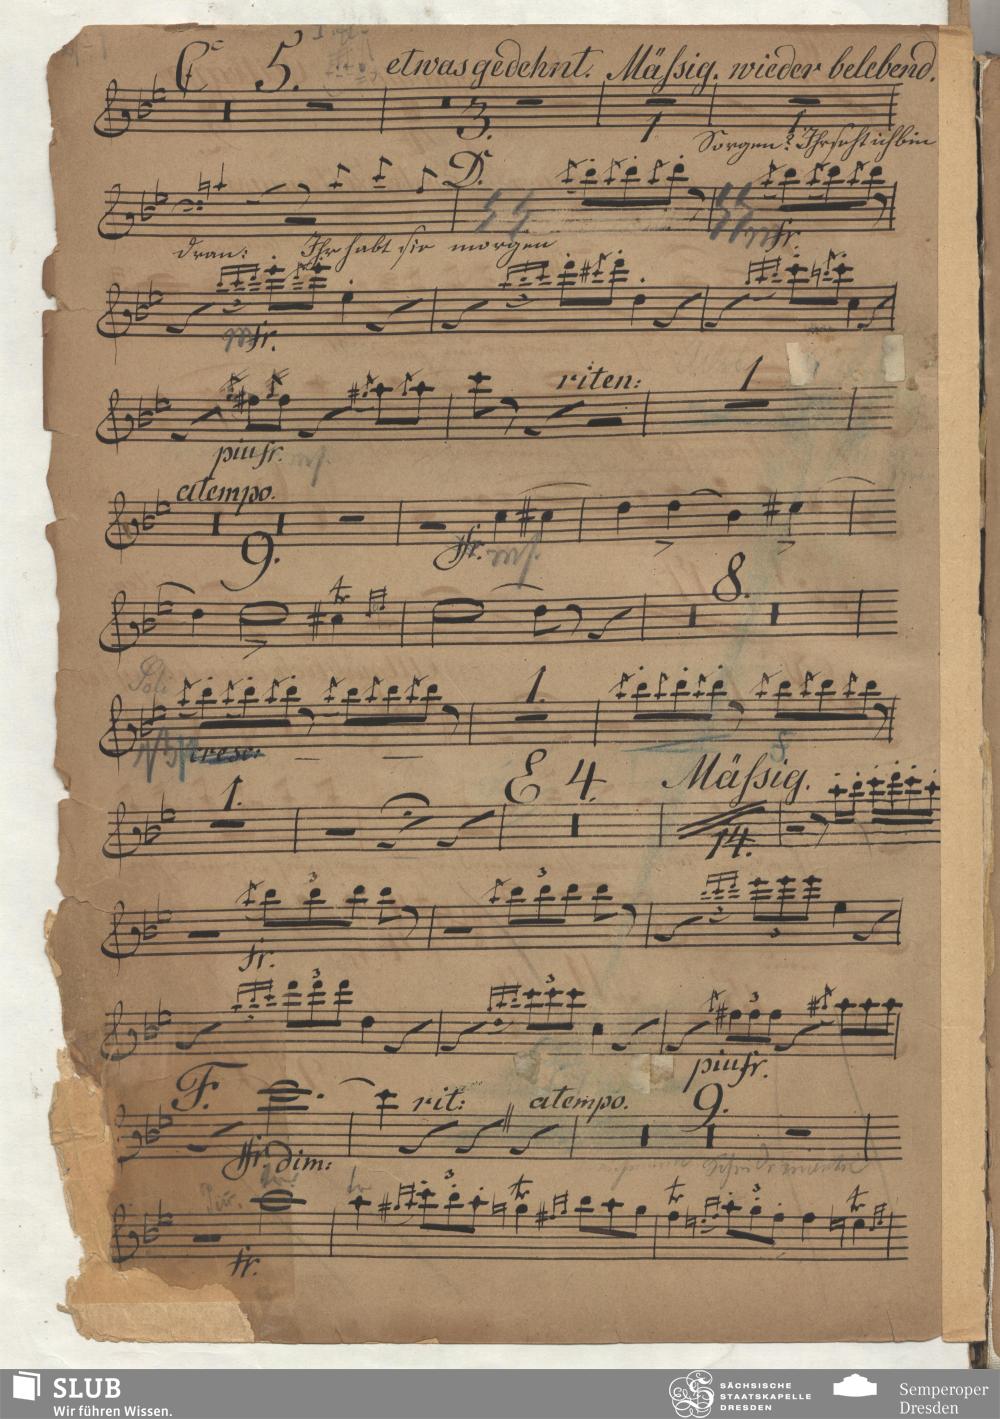 C 5. etwas gedehnt. Mäßig. wieder belebend.
3. 1 1
Sorgen? Ihr seht ich bin
D.
dran: Ihr habt sie morgen
riten: 1
atempo.
9.
8.
Soli
1.
cresc.
1. E 4. Mäßig.
14.
3 3
3
3 3 3
F. rit: atempo. 9.
dim:
3 3
SLUB
Wir führen Wissen.
SÄCHSISCHE
STAATSKAPELLE
DRESDEN
Semperoper
Dresden